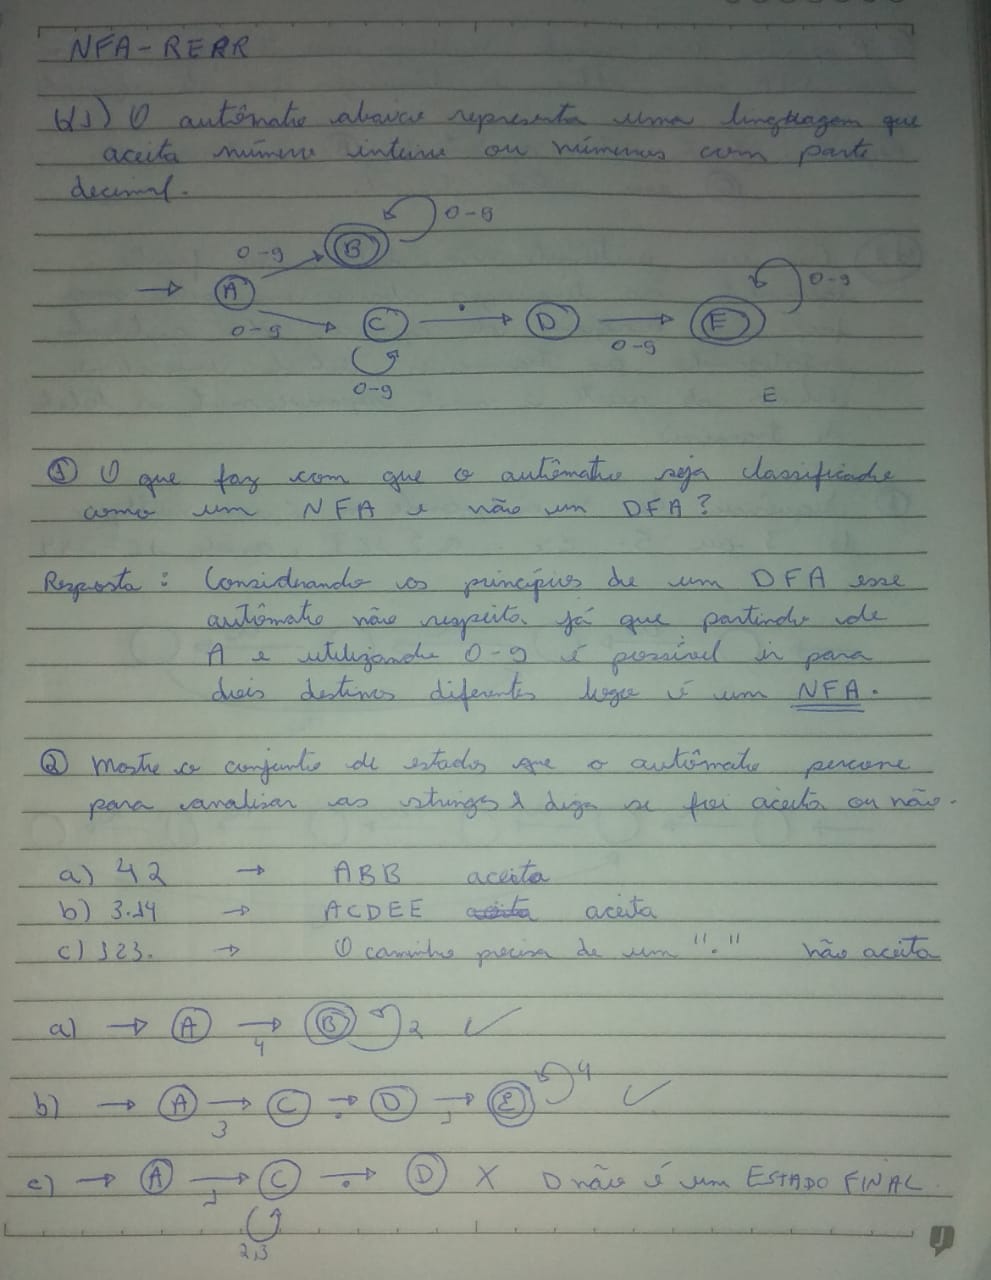 NFA - RERR
O autômato abaixo representa uma linguagem que
aceita número inteiro ou números com parte
decimal.
0-9
0-9
B
A
0-9
C
.
D
0-9
E
0-9
0-9
E
① O que faz com que o autômato seja classificado
como um NFA e não um DFA?
Resposta: Considerando os princípios de um DFA esse
autômato não respeita já que partindo de
A e utilizando 0-9 é possível ir para
dois destinos diferentes logo é um NFA.
② Mostre o conjunto de estados que o autômato percorre
para analisar as strings e diga se foi aceita ou não.
a) 42 → ABB aceita
b) 3.14 → ACDEE aceita aceita
c) 123. → O caminho precisa de um "." não aceita
a) → A → 4 B 2 ✓
b) → A → 3 C → . D → 1 E 4 ✓
c) → A → 1 C → . D X D não é um ESTADO FINAL
2,3
J